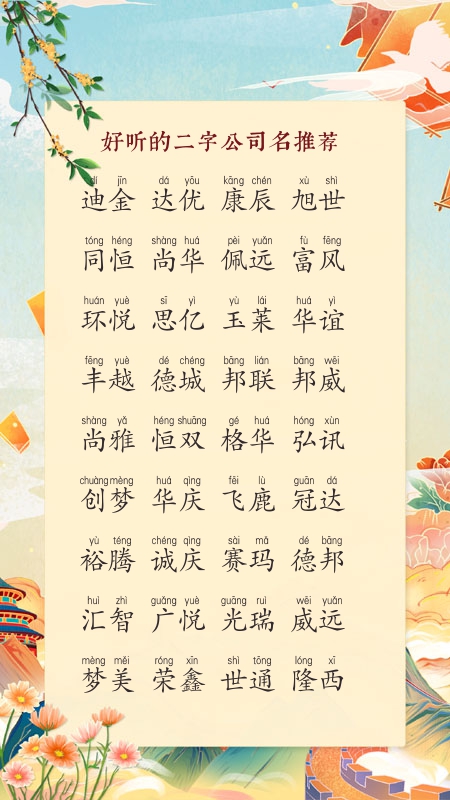 好听的二字公司名推荐
dí jīn dá yōu kāng chén xù shì
迪金 达优 康辰 旭世
tóng héng shàng huá pèi yuǎn fù fēng
同恒 尚华 佩远 富风
huán yuè sī yì yù lái huá yì
环悦 思亿 玉莱 华谊
fēng yuè dé chéng bāng lián bāng wēi
丰越 德城 邦联 邦威
shàng yǎ héng shuāng gé huá hóng xùn
尚雅 恒双 格华 弘讯
chuàng mèng huá qìng fēi lù guān dá
创梦 华庆 飞鹿 冠达
yù téng chéng qìng sài mǎ dé bāng
裕腾 诚庆 赛玛 德邦
huì zhì guǎng yuè guāng ruì wēi yuǎn
汇智 广悦 光瑞 威远
mèng měi róng xīn shì tōng lóng xī
梦美 荣鑫 世通 隆西